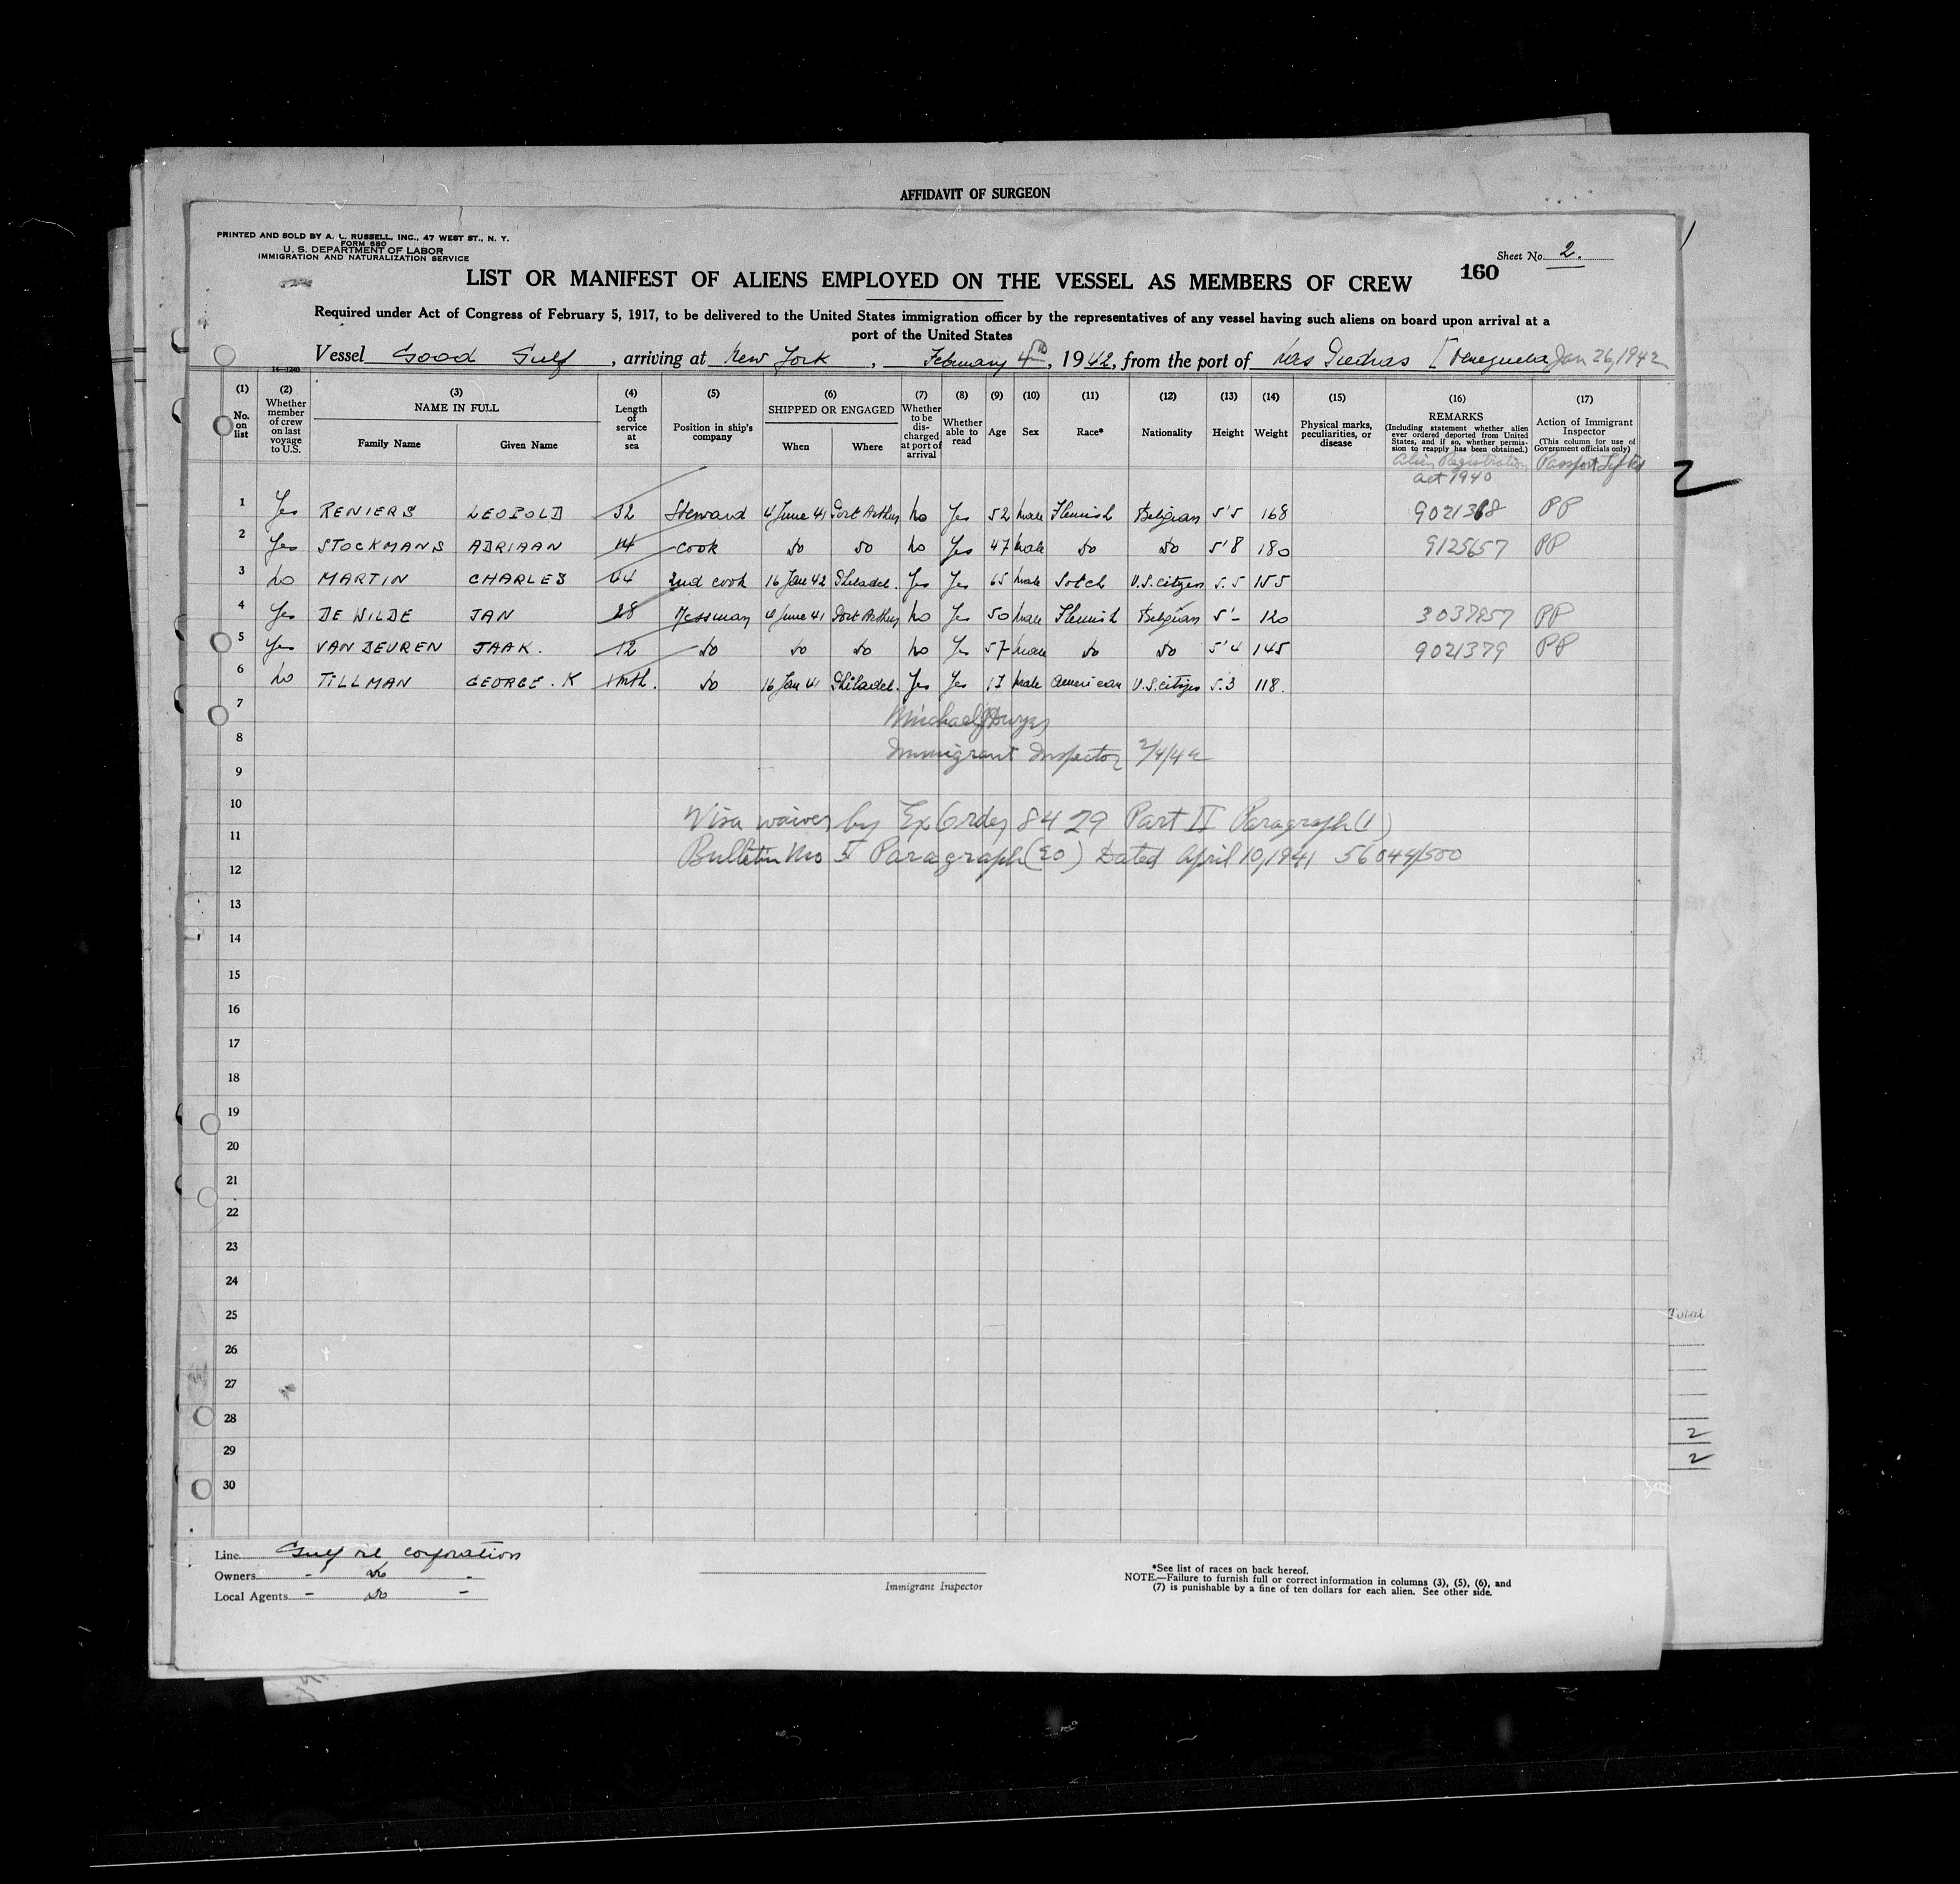 AFFIDAVIT OF SURGEON
PRINTED AND SOLD BY A. L. RUSSELL, INC., 47 WEST ST., N. Y.
FORM 680
U. S. DEPARTMENT OF LABOR
IMMIGRATION AND NATURALIZATION SERVICE
Sheet No. 2.
LIST OR MANIFEST OF ALIENS EMPLOYED ON THE VESSEL AS MEMBERS OF CREW 160
Required under Act of Congress of February 5, 1917, to be delivered to the United States immigration officer by the representatives of any vessel having such aliens on board upon arrival at a
port of the United States
Vessel Good Gulf, arriving at New York, February 4th, 1942, from the port of Piedras [Venezuela Jan 26, 1942
14-1240
(1) No. on list
(2) Whether member of crew on last voyage to U.S.
(3) NAME IN FULL Family Name Given Name
(4) Length of service at sea
(5) Position in ship's company
(6) SHIPPED OR ENGAGED When Where
(7) Whether to be discharged at port of arrival
(8) Whether able to read
(9) Age
(10) Sex
(11) Race*
(12) Nationality
(13) Height
(14) Weight
(15) Physical marks, peculiarities, or disease
(16) REMARKS (Including statement whether alien ever ordered deported from United States, and if so, whether permission to reapply has been obtained.)
(17) Action of Immigrant Inspector (This column for use of Government officials only)
Alien Registration Act 1940
Passport
2
1 Yes RENIERS LEOPOLD 32 Steward 4 June 41 Port Arthur no Yes 52 male Flemish Belgian 5'5 168 9021368 PP
2 Yes STOCKMANS ADRIAAN 14 cook do do no Yes 47 male do do 5'8 180 9125657 PP
3 no MARTIN CHARLES 44 2nd cook 16 Jan 42 Philadel. Yes Yes 65 male Scotch U.S. citizen 5.5 155
4 Yes DE WILDE JAN 28 Messman 4 June 41 Port Arthur no Yes 50 male Flemish Belgian 5'- 120 3037857 PP
5 Yes VAN DEUREN JAAK. 12 do do do no Yes 57 male do do 5'4 145 9021379 PP
6 no TILLMAN GEORGE. K 1 mth. do 16 Jan 41 Philadel. Yes Yes 17 male American U.S. citizen 5.3 118.
7
Michael J Dwyer
8
Immigrant Inspector 2/4/42
9
10
Visa waiver by Ex Order 8429 Part II Paragraph (1)
11
Bulletin No 5 Paragraph (20) Dated April 10, 1941 56044/500
12
13
14
15
16
17
18
19
20
21
22
23
24
25
26
27
28
29
30
Total
2
2
Line Gulf oil corporation
Owners - do -
Local Agents - do -
Immigrant Inspector
*See list of races on back hereof.
NOTE.—Failure to furnish full or correct information in columns (3), (5), (6), and
(7) is punishable by a fine of ten dollars for each alien. See other side.